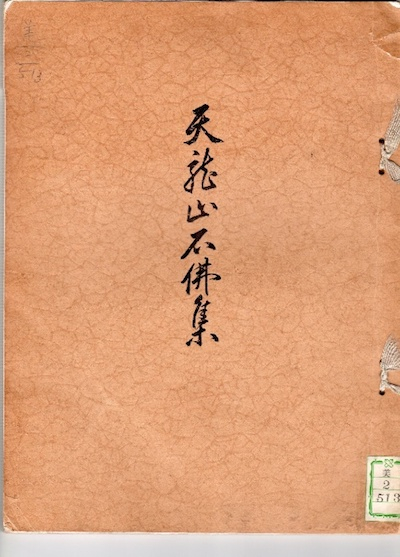 天龍山石佛集
美
513
美
2
513